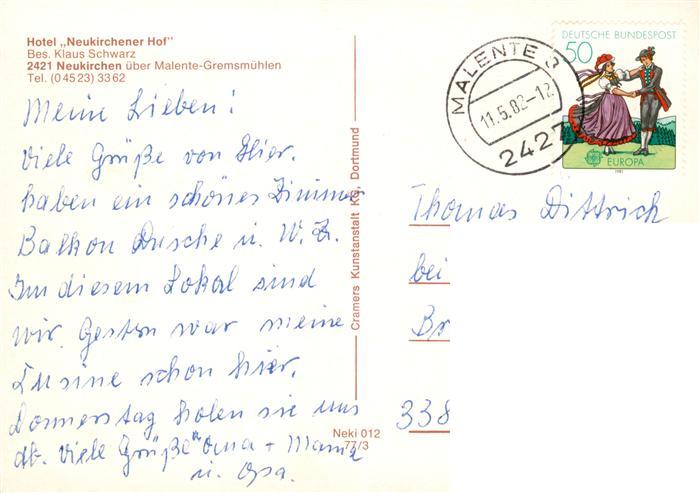 Hotel „Neukirchener Hof"
Bes. Klaus Schwarz
2421 Neukirchen über Malente-Gremsmühlen
Tel. (0 45 23) 33 62
Meine Lieben!
Viele Grüße von Hier.
haben ein schönes Zimmer
Balkon Dusche u. W.Z.
Im diesem Lokal sind
wir. Gestern war meine
Cusine schon hier.
Donnerstag holen sie uns
ab. Viele Grüße Oma + Mama
u. Opa.
Cramers Kunstanstalt KG, Dortmund
Neki 012
77/3
MALENTE 3
11.5.82-12
2427
DEUTSCHE BUNDESPOST
50
EUROPA
1981
Thomas Dittrich
bei
Br
338